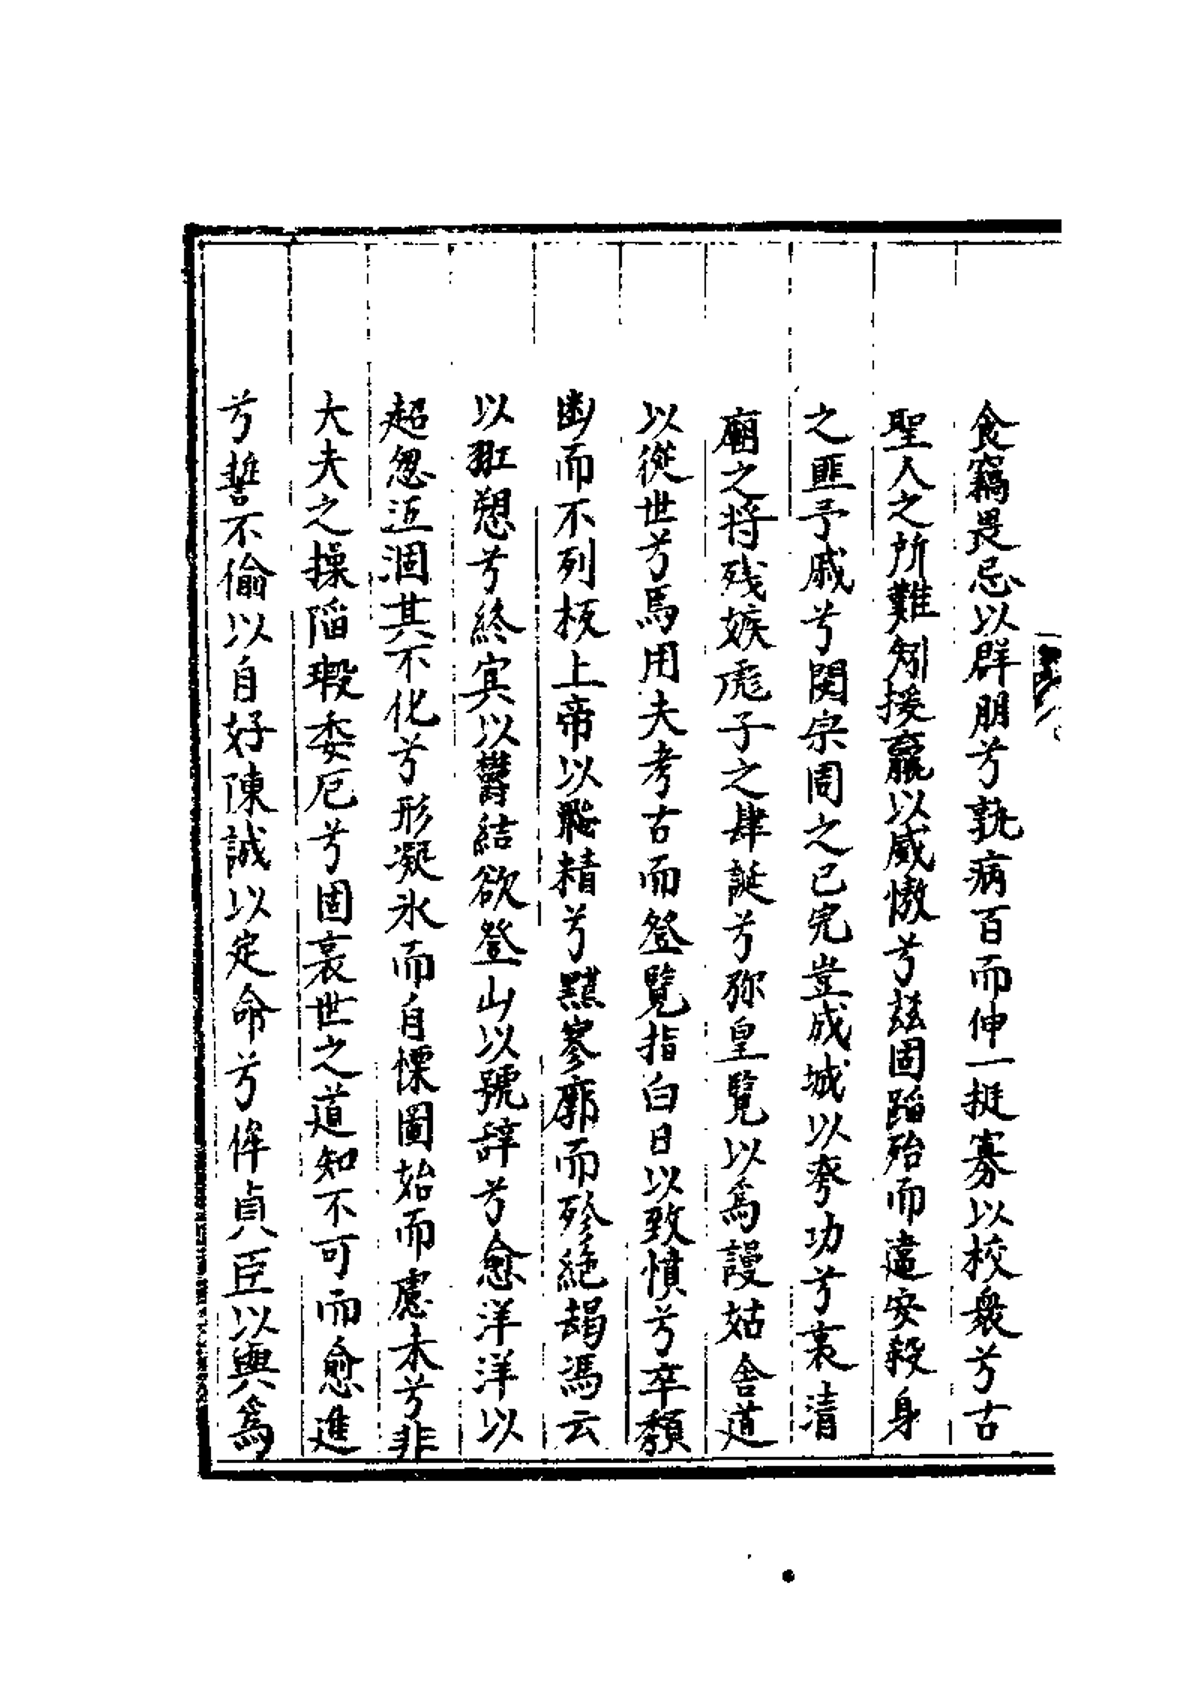 食竊畏忌以群朋兮孰病百而伸一挺寡以校衆兮古
聖人之所難矧援羸以威慠兮茲固蹈殆而違安殺身
之匪予戚兮閔宗周之已完豈成城以夸功兮哀清
廟之將残嫉彪子之肆誕兮弥皇覽以為謾姑舍道
以從世兮焉用夫考古而登覽指白日以致憤兮卒頽
幽而不列板上帝以飛精兮黮寥廓而殄絶朅馮云
以羾愬兮終冥以欝結欲登山以號辞兮愈洋洋以
超忽沍涸其不化兮形凝氷而自慄圖始而慮末兮非
大夫之操陷瑕委厄兮固衰世之道知不可而愈進
兮誓不偷以自好陳誠以定命兮侔貞臣以與為